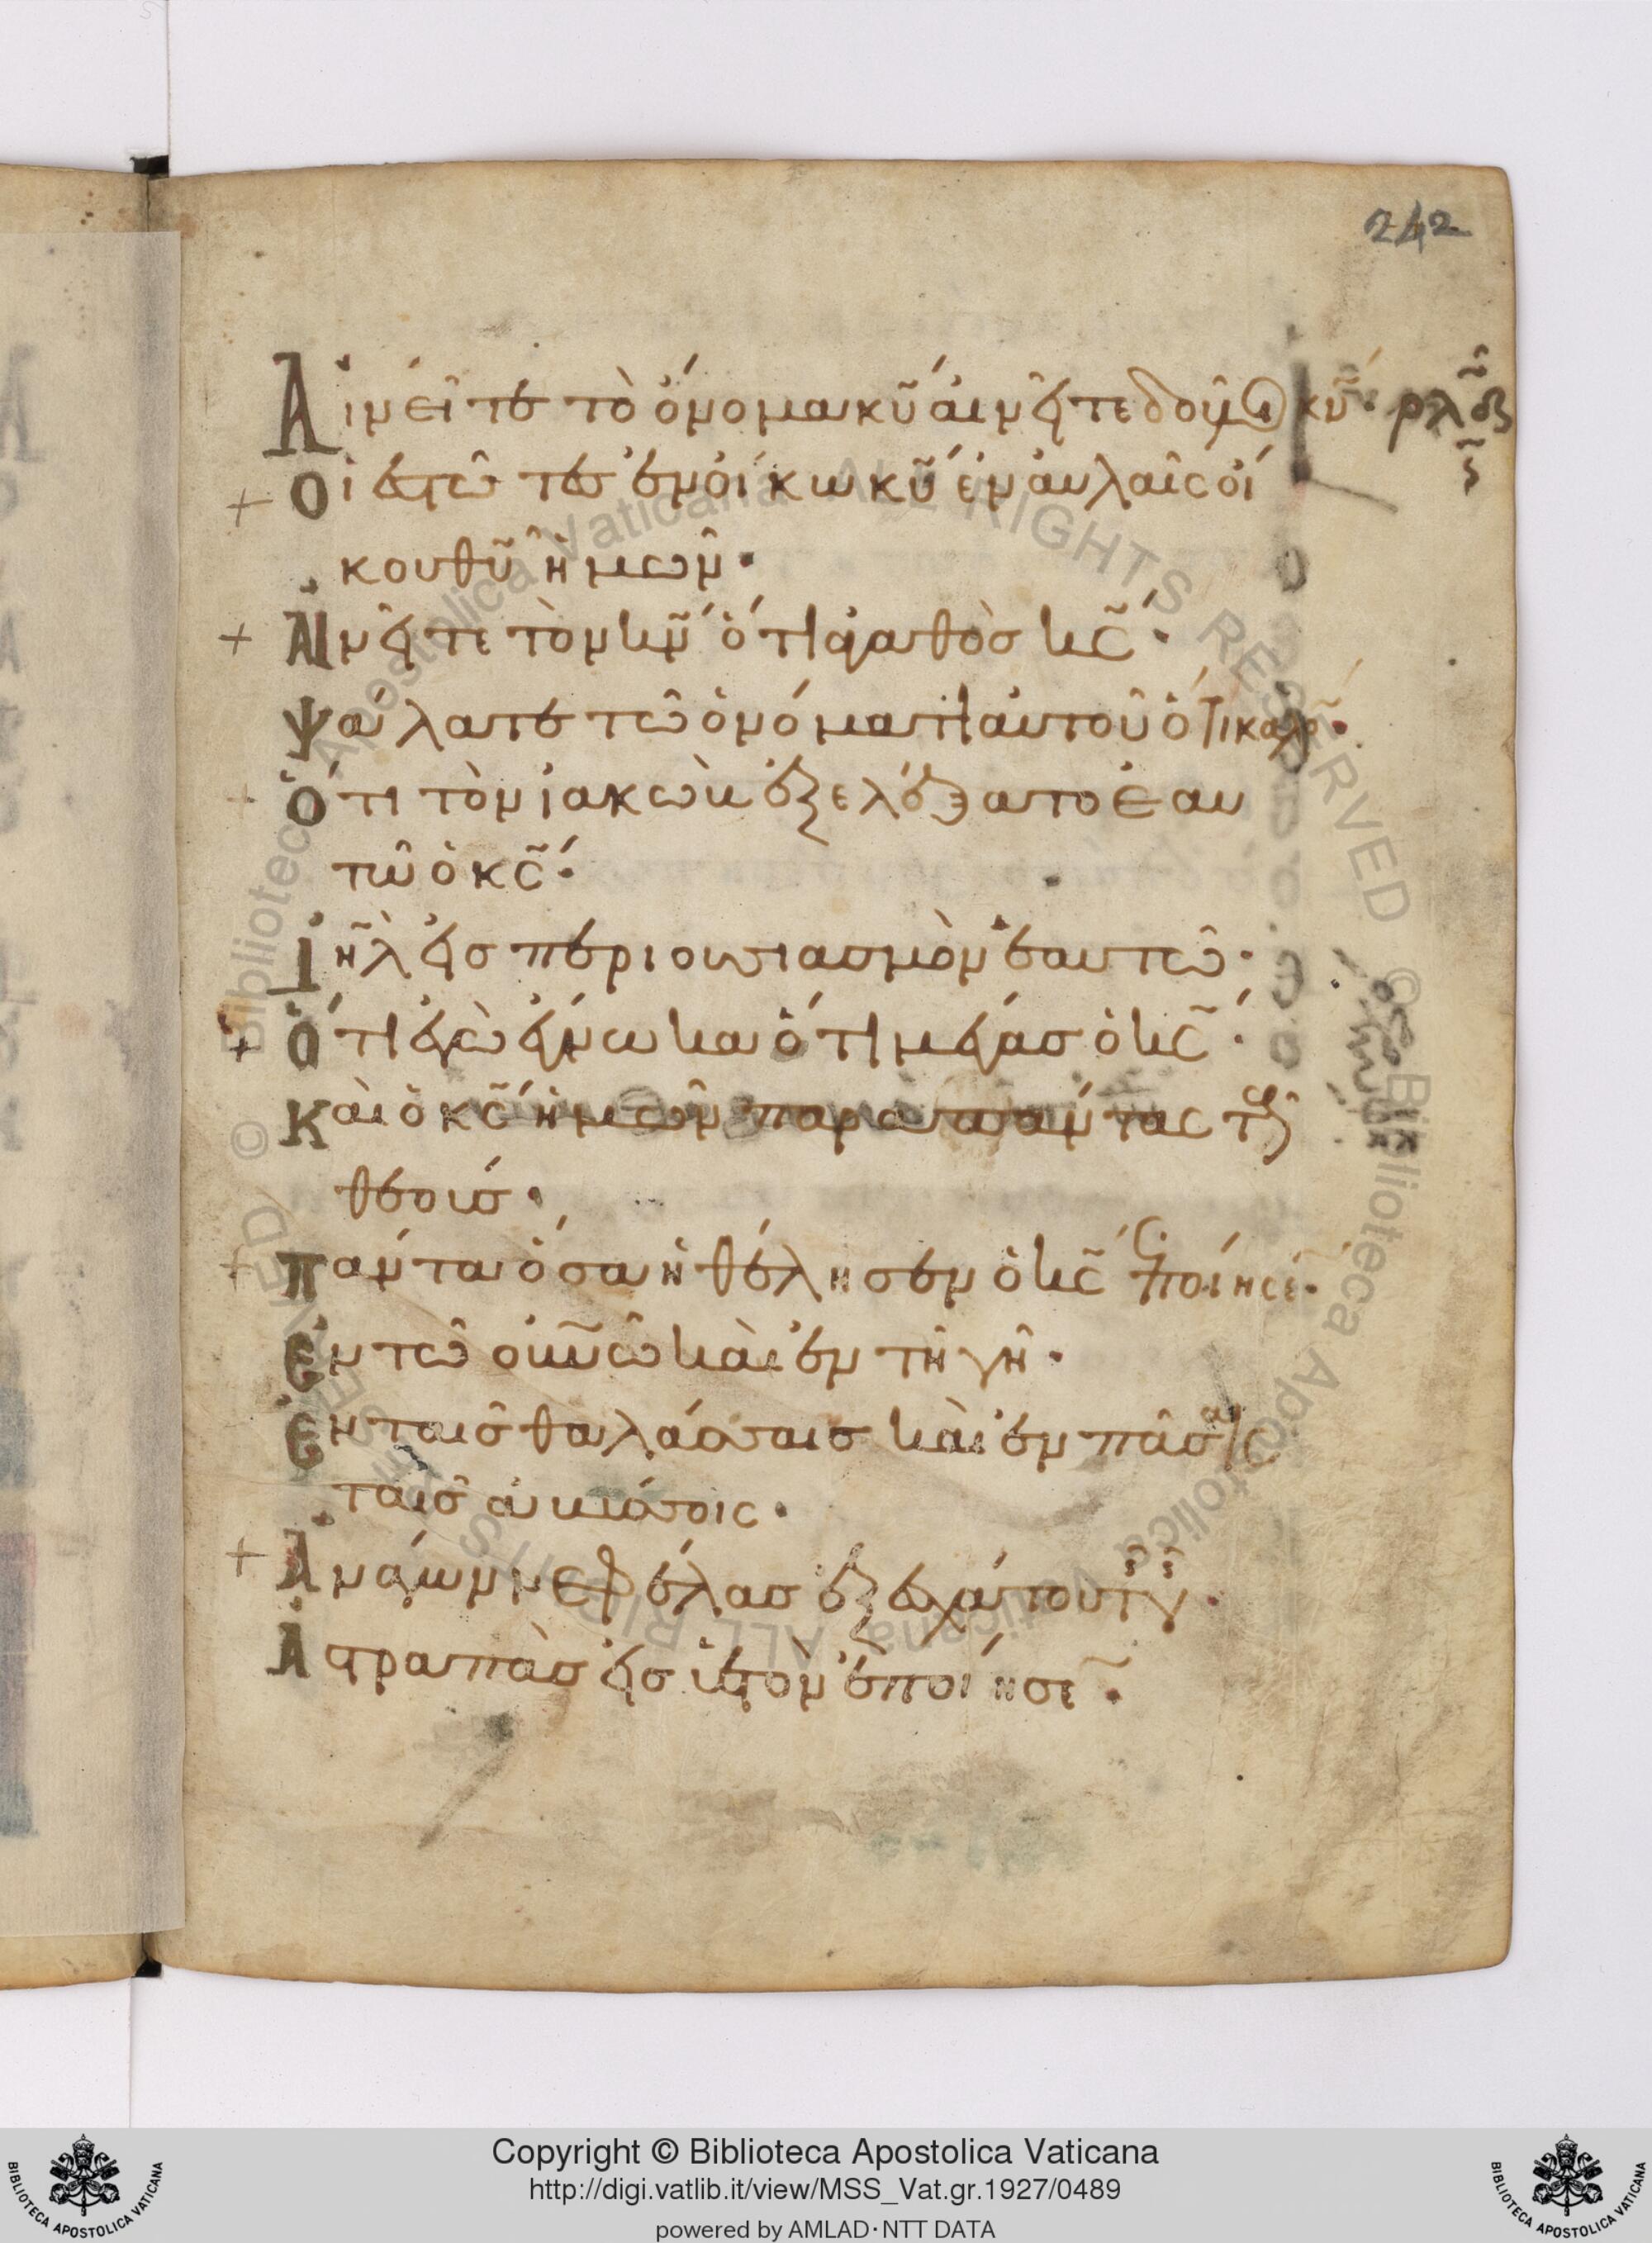 242
Αἰνεῖτε τὸ ὄνομα κυ̃ αἰνεῖτε δοῦλοι κν̃· ρλδ
Οἱ ἑστῶτες ἐν οἴκω κυ̃ ἐν αὐλαῖς οἴ
κου θυ̃ ἡμῶν·
Αἰνεῖτε τὸν κν̃ ὅτι ἀγαθὸσ κς̃·
Ψάλατε τῶ ὀνόματι αὐτοῦ ὅτι καλὸ·
Ὅτι τὸν ϊακὼκ ἐξελέξατο ἑαυ
τῶ ὁ κς̃·
Ιη̃λ εἰσ περιουσιασμὸν ἑαυτῶ·
Ὅτι ἐγὼ ἔγνωκα ὅτι μέγασ ὁ κς̃·
Καὶ ὁ κς̃ ἡμῶν παρὰ πάντας τοὺς
θεούσ·
Πάντα ὅσα ἠθέλησεν ὁ κς̃ ἐποίησε·
Ἐν τῶ οὐνῶ καὶ ἐν τῆ γῆ·
Ἐν ταῖσ θαλάσσαισ καὶ ἐν πάσαις
ταῖσ ἀβύσσοις·
Ἀνάγων νεφέλασ ἐξ ἐσχάτου τῆς γῆς·
Ἀστραπὰσ εἰσ ὑετὸν ἐποίησε·
Copyright © Biblioteca Apostolica Vaticana
http://digi.vatlib.it/view/MSS_Vat.gr.1927/0489
powered by AMLAD·NTT DATA
BIBLIOTECA APOSTOLICA VATICANA
BIBLIOTECA APOSTOLICA VATICANA